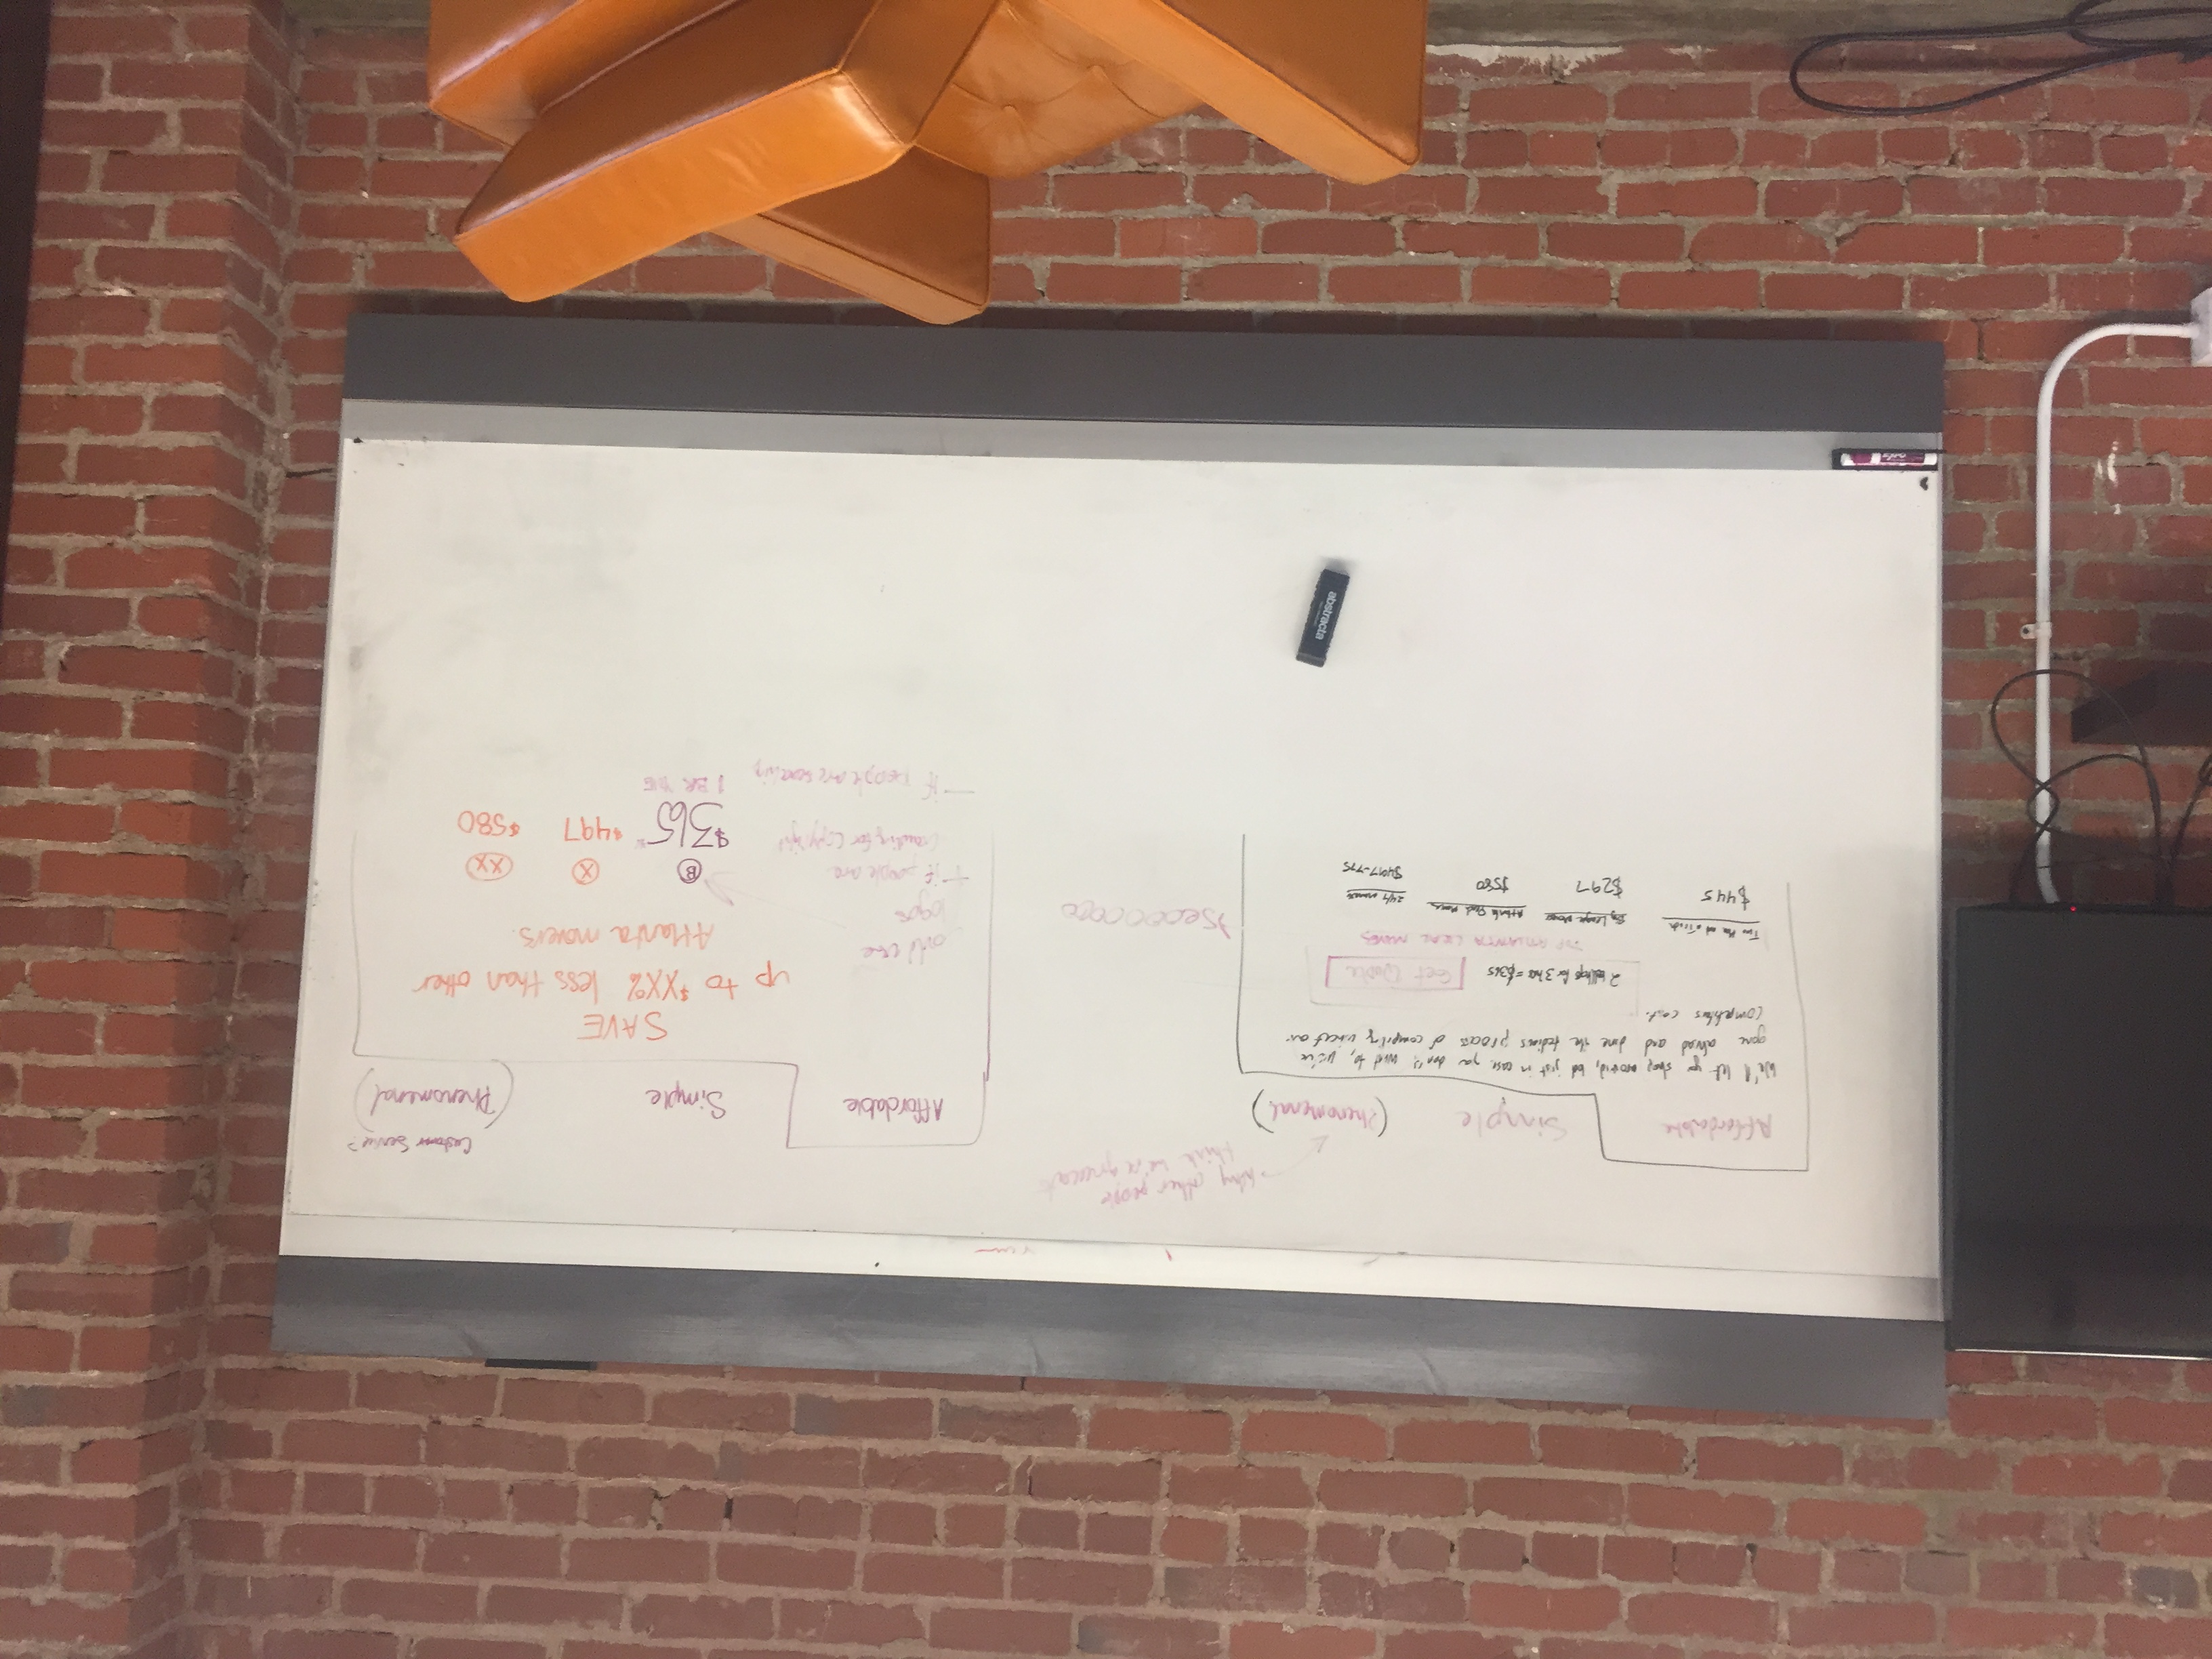 Why other people
think we're greeeeat
Affordable
Simple
(Phenomenal)
We'll let you shop around, but just in case you don't want to, we've
gone ahead and done the tedious process of compiling what our
competitors cost.
2 bellhops for 3 hrs = $365
Get Quote
TOP ATLANTA LOCAL MOVES
Two Men and a Truck
$445
Big League Moves
$297
Atlanta Peach Movers
$580
24/7 movers
$497-775
Seooooooo
abstracta
Customer Service?
Affordable
Simple
(Phenomenal)
SAVE
up to $XX% less than other
Atlanta movers.
could use
logos
+ if people are
crawling for copyright
- if people are searching
B
$365
1 BR
X
$497
XX
$580